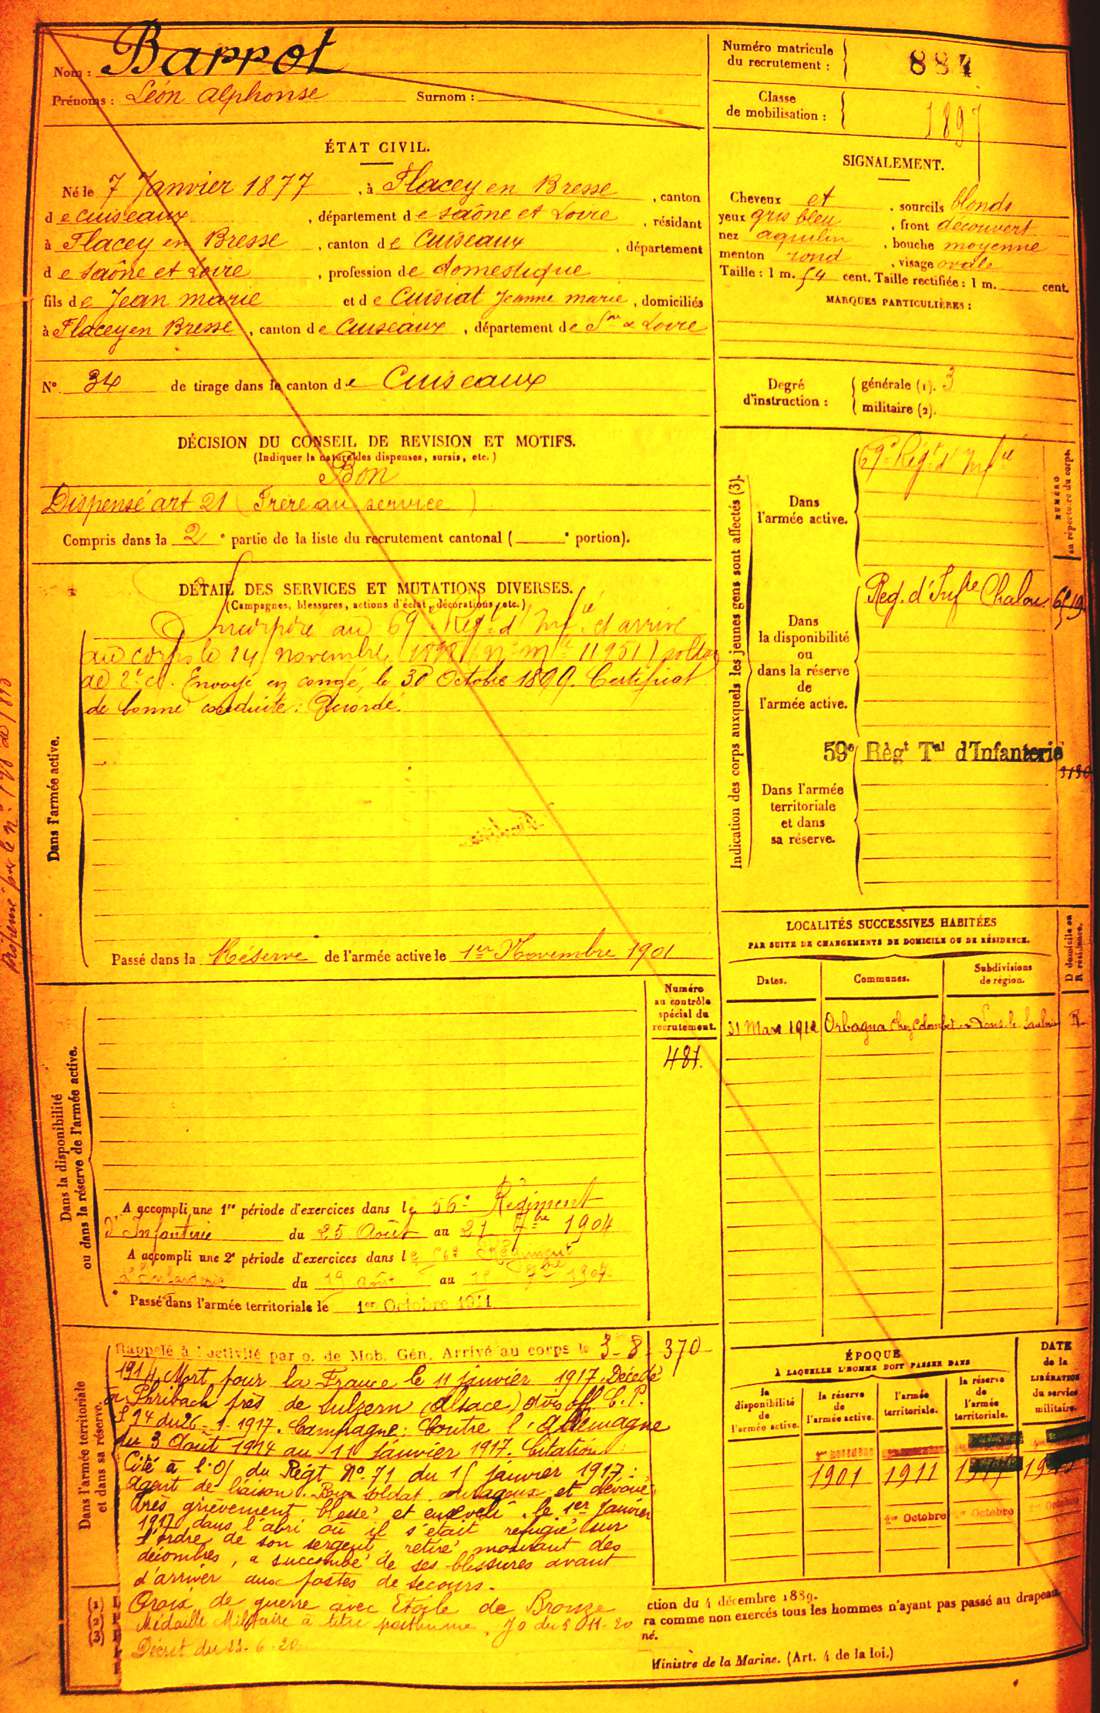 Nom : Barrot
Prénoms : Léon Alphonse Surnom :
ÉTAT CIVIL.
Né le 7 Janvier 1877, à Flacey en Bresse, canton
de Cuiseaux, département de Saône et Loire, résidant
à Flacey en Bresse, canton de Cuiseaux, département
de Saône et Loire, profession de domestique
fils de Jean marie et de Cuisiat Jeanne marie, domiciliés
à Flacey en Bresse, canton de Cuiseaux, département de S. & Loire
N° 34 de tirage dans le canton de Cuiseaux
DÉCISION DU CONSEIL DE REVISION ET MOTIFS.
(Indiquer la nature des dispenses, sursis, etc.)
Bon
Dispensé art 21 (Frère au service)
Compris dans la 2e partie de la liste du recrutement cantonal ( e portion).
DÉTAIL DES SERVICES ET MUTATIONS DIVERSES.
(Campagnes, blessures, actions d'éclat, décorations, etc.)
Dans l'armée active.
Incorporé au 69e Régt d'Infie et arrivé
au corps le 14 novembre 1898 n° mle 11951 soldat
de 2e cl. Envoyé en congé, le 30 Octobre 1899. Certificat
de bonne conduite : Accordé.
Passé dans la Réserve de l'armée active le 1er Novembre 1901
Dans la disponibilité
ou dans la réserve de l'armée active.
Numéro
au contrôle
spécial du
recrutement.
481.
A accompli une 1re période d'exercices dans le 56e Régiment
d'Infanterie du 25 Août au 21 7bre 1904
A accompli une 2e période d'exercices dans le 56e Régiment
d'Infanterie du 19 août au 7bre 1907
Passé dans l'armée territoriale le 1er Octobre 1911
Dans l'armée territoriale
et dans sa réserve.
Rappelé à l'activité par o. de Mob. Gén. Arrivé au corps le 3-8- 370
1914. Mort pour la France le 11 janvier 1917. Décédé
près de Sulzern (Alsace)
du 26-1-1917. Campagne : Contre l'Allemagne
du 3 Août 1914 au 11 Janvier 1917. Citation :
Cité à l'O/ du Régt N° 71 du 15 janvier 1917 :
Agent de liaison. Bon soldat courageux et dévoué
très grièvement blessé et enseveli le 1er Janvier
1917 dans l'abri où il s'était réfugié sur
l'ordre de son sergent, retiré mourant des
décombres, a succombé de ses blessures avant
d'arriver aux postes de secours.
Croix de guerre avec Etoile de Bronze
Médaille Militaire à titre posthume. JO du 5 Oct. 20
Décret du 22-6-20
Numéro matricule
du recrutement : 884
Classe
de mobilisation : 1897
SIGNALEMENT.
Cheveux et, sourcils blonds
yeux gris bleu, front découvert
nez aquilin, bouche moyenne
menton rond, visage ovale
Taille : 1 m. 54 cent. Taille rectifiée : 1 m. cent.
MARQUES PARTICULIÈRES :
Degré
d'instruction :
générale (1). 3
militaire (2).
Indication des corps auxquels les jeunes gens sont affectés (3).
NUMÉRO
au répertoire du corps.
Dans
l'armée active.
69e Régt d'Infie
Dans
la disponibilité
ou
dans la réserve
de
l'armée active.
Reg. d'Infie Chalon
59e Règt Tal d'Infanterie
Dans l'armée
territoriale
et dans
sa réserve.
LOCALITÉS SUCCESSIVES HABITÉES
PAR SUITE DE CHANGEMENTS DE DOMICILE OU DE RÉSIDENCE.
D domicile ou
R résidence.
Dates.
Communes.
Subdivisions
de région.
31 Mars 1912 Orbagna chez Colombet Lons le Saulnier R
ÉPOQUE
À LAQUELLE L'HOMME DOIT PASSER DANS
DATE
de la
LIBÉRATION
du service
militaire.
la
disponibilité
de
l'armée active.
la réserve
de
l'armée active.
l'armée
territoriale.
la réserve
de
l'armée
territoriale.
1901 1911
1er Octobre
ction du 4 décembre 1889.
ra comme non exercés tous les hommes n'ayant pas passé au drapeau
né.
Ministre de la Marine. (Art. 4 de la loi.)